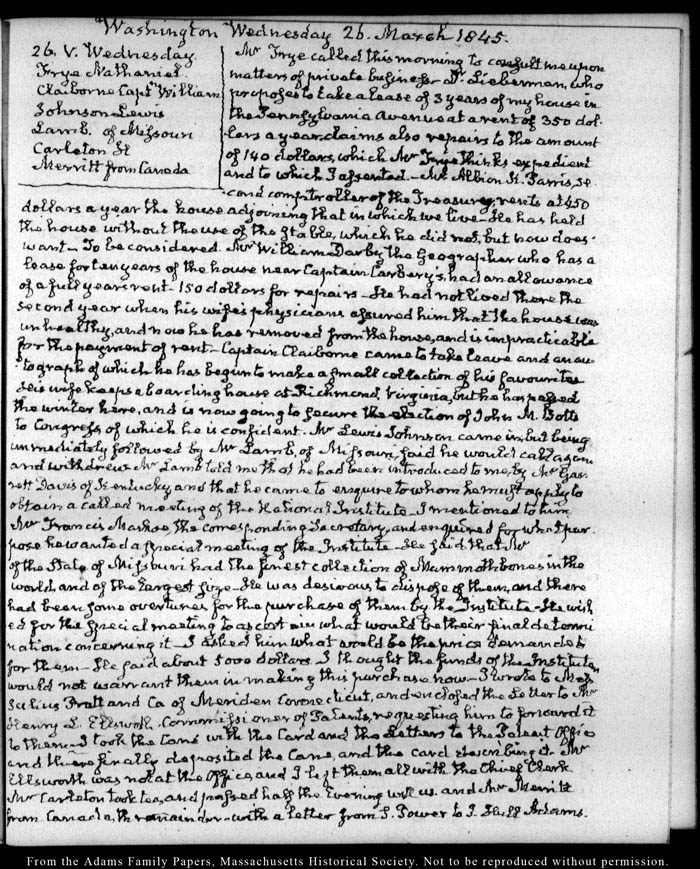 Washington Wednesday 26. March 1845.
26. V. Wednesday.
Frye Nathaniel.
Claiborne Capt. William
Johnson Lewis
Lamb. of Missouri
Carleton H
Merritt from Canada
Mr Frye called this morning to consult me upon
matters of private business - Dr. Lieberman, who
proposes to take a lease of 3 years of my house in
the Pennsylvania Avenue at a rent of 350 dol-
lars a year. claims also repairs to the amount
of 140 dollars, which Mr Frye thinks expedient
and to which I assented - Mr Albion K. Parris, se
cond comptroller of the Treasury, rents at 450
dollars a year the house adjoining that in which we live - He has held
the house without the use of the stable, which he did not, but now does
want - To be considered. Mr William Darby the Geographer who has a
lease for ten years of the house near Captain Carbery's, had an allowance
of a full years rent - 150 dollars for repairs - He had not lived there the
second year when his wife's physicians assured him that the house was
unhealthy, and now he has removed from the house, and is impracticable
for the payment of rent - Captain Claiborne came to take leave and an au-
tograph of which he has begun to make a small collection of his favourites
His wife keeps a boarding house at Richmond, Virginia, but he has passed
the winter here, and is now going to secure the election of John M. Botts
to Congress of which he is confident. Mr Lewis Johnson came in but being
immediately followed by Mr Lamb, of Missouri, said he would call again
and withdrew. Mr Lamb told me that he had been introduced to me, by Mr Gar-
rett Davis of Kentucky and that he came to enquire to whom he must apply to
obtain a called meeting of the National Institute - I mentioned to him
Mr Francis Markoe, the corresponding Secretary, and enquired for what pur-
pose he wanted a special meeting of the Institute - He said that Mr
of the State of Missouri had the finest collection of Mammoth bones in the
world and of the largest size - He was desirous to dispose of them, and there
had been some overtures for the purchase of them by the Institute - He wish
ed for the special meeting to ascertain what would be their final determi
nation concerning it - I asked him what would be the price demanded
for them - He said about 5000 dollars - I thought the funds of the Institute
would not warrant them in making this purchase now - I wrote to Messrs
Julius Pratt and Co of Meriden Connecticut, and enclosed the Letter to Mr
Henry L. Ellsworth Commissioner of Patents, requesting him to forward it
to them - I took the Cane with the Card and the Letters to the Patent Office
and there finally deposited the Cane, and the card describing it. Mr
Ellsworth was not at the Office, and I left them all with the Chief Clerk.
Mr Carleton took tea, and passed half the Evening with us. and Mr Merritt
from Canada, the remainder - with a letter from T. Power to J. Hull Adams.
From the Adams Family Papers, Massachusetts Historical Society. Not to be reproduced without permission.